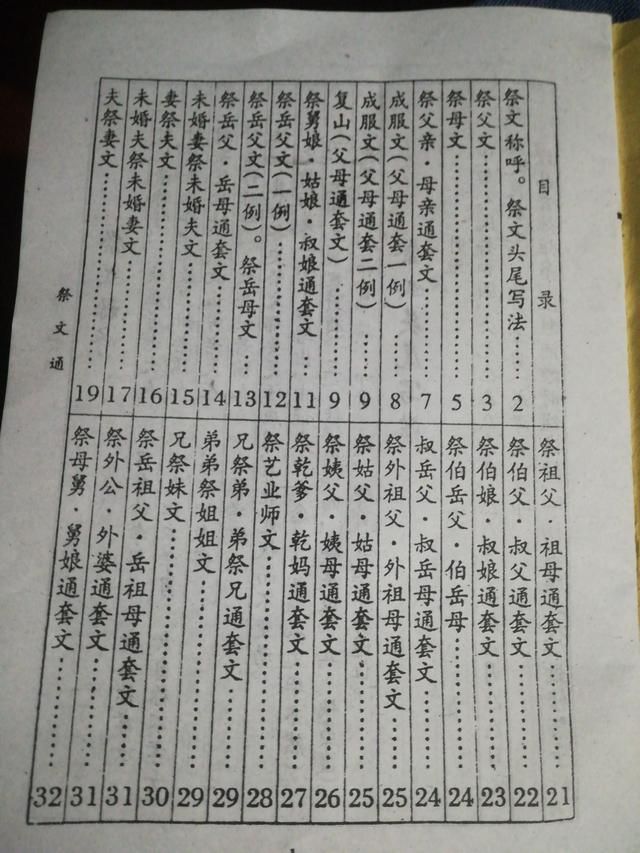 目录
祭文称呼。祭文头尾写法……2
祭父文……3
祭母文……5
祭父亲·母亲通套文……7
成服文(父母通套一例)……8
成服文(父母通套二例)……9
复山(父母通套文)……9
祭舅娘·姑娘·叔娘通套文…11
祭岳父文(一例)……12
祭岳父文(二例)。祭岳母文…13
祭岳父·岳母通套文……14
未婚妻祭未婚夫文……15
妻祭夫文……16
未婚夫祭未婚妻文……17
夫祭妻文……19
祭祖父·祖母通套文……21
祭伯父·叔父通套文……22
祭伯娘·叔娘通套文……23
祭伯岳父·伯岳母……24
叔岳父·叔岳母通套文……24
祭外祖父·外祖母通套文……25
祭姑父·姑母通套文……25
祭姨父·姨母通套文……26
祭乾爹·乾妈通套文……27
祭艺业师文……28
兄祭弟·弟祭兄通套文……29
弟弟祭姐姐文……29
兄祭妹文……30
祭岳祖父·岳祖母通套文……31
祭外公·外婆通套文……31
祭母舅·舅娘通套文……32
祭文通